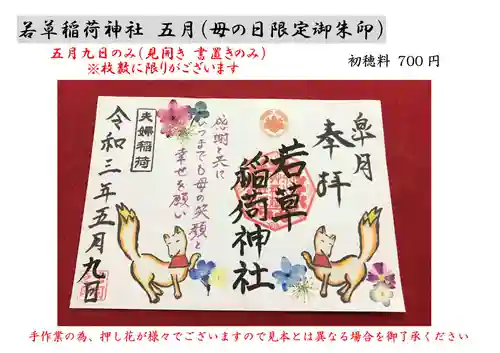 若草稲荷神社 五月(母の日限定御朱印)
五月九日のみ(見開き 書置きのみ)
※枚数に限りがございます
初穂料 700円
皐月
奉拝
若草
稲荷神社
感謝と共に
いつまでも母の笑顔と
幸せを願い
夫婦稲荷
令和三年五月九日
手作業の為、押し花が様々でございますので見本とは異なる場合を御了承ください